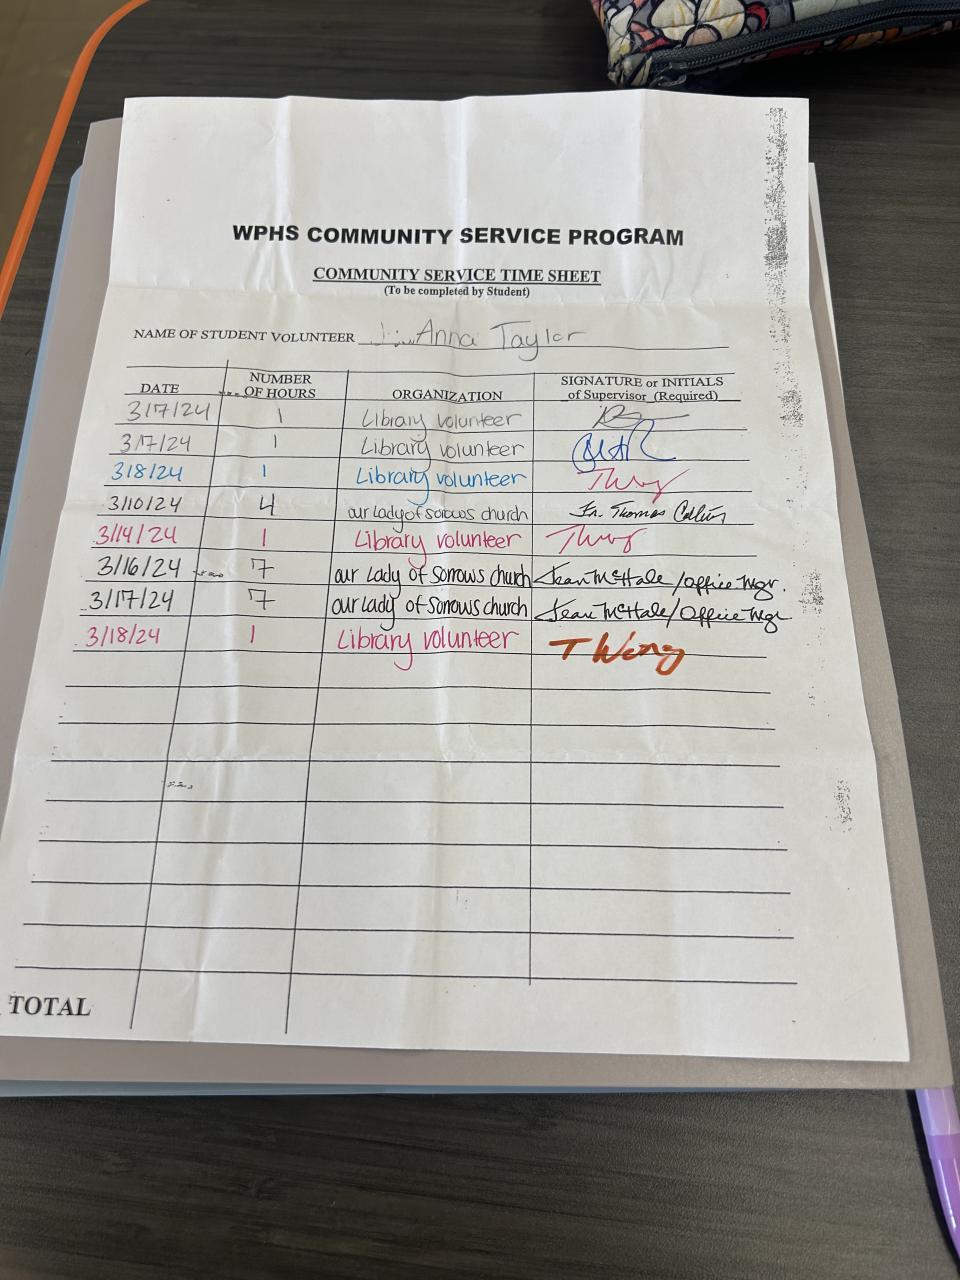 WPHS COMMUNITY SERVICE PROGRAM
COMMUNITY SERVICE TIME SHEET
(To be completed by Student)
NAME OF STUDENT VOLUNTEER Anna Taylor
DATE NUMBER OF HOURS ORGANIZATION SIGNATURE or INITIALS of Supervisor (Required)
3/7/24 1 Library volunteer
3/7/24 1 Library volunteer
3/8/24 1 Library volunteer
3/10/24 4 our lady of sorrows church Fr. Thomas Collins
3/14/24 1 Library volunteer
3/16/24 7 our Lady of Sorrows church Jean McHale / Office Mgr.
3/17/24 7 our lady of Sorrows church Jean McHale / Office Mgr
3/18/24 1 Library volunteer T Wong
TOTAL